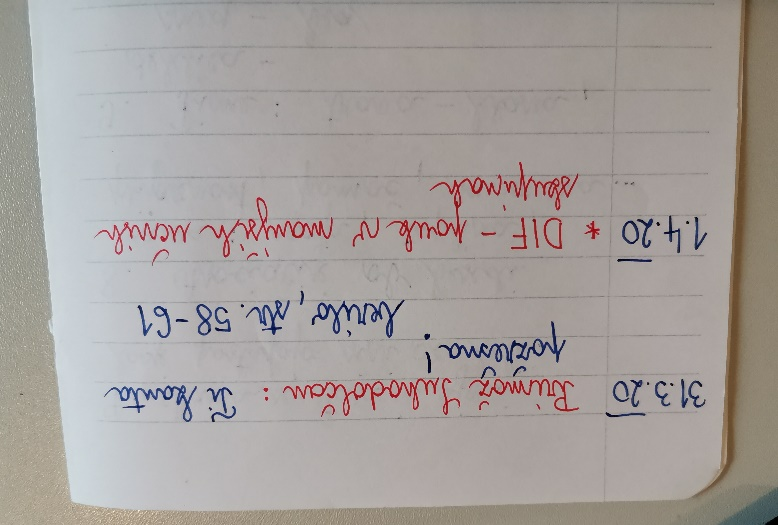 31.3.20 Primož Suhodolčan: Ti kanta
pozresna!
berilo, str. 58-61
1.4.20 * DIF - pouk v manjših učnih
skupinah